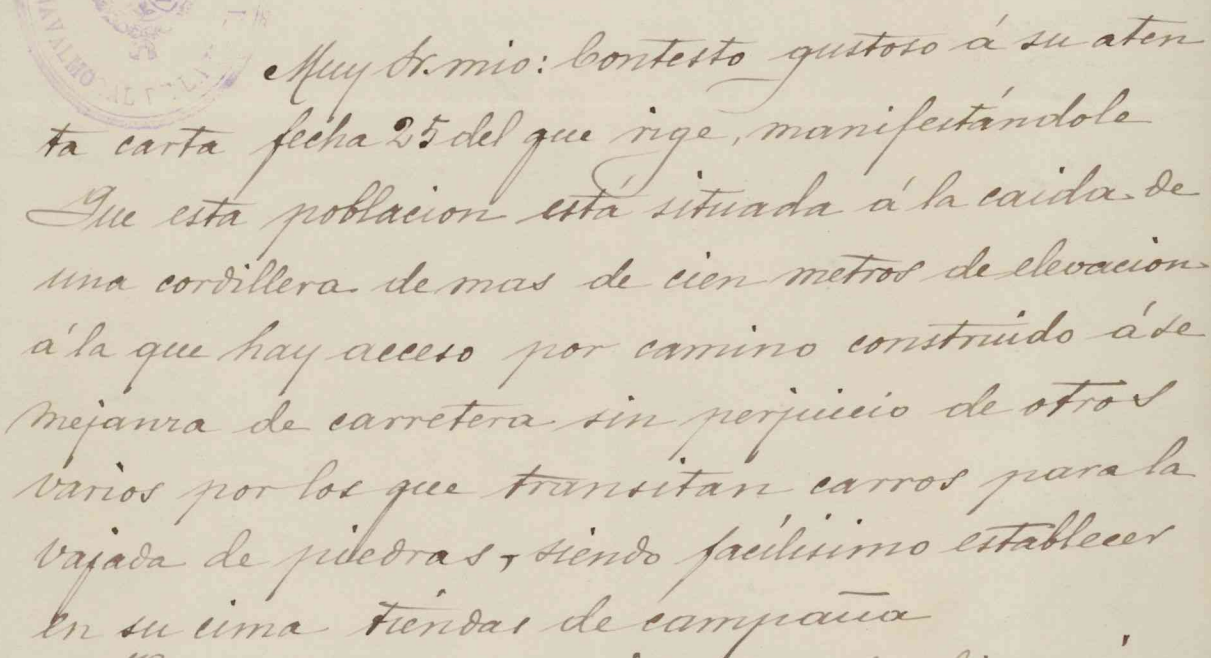 Muy Sr. mio: Contesto gustoso á su aten
ta carta fecha 25 del que rige, manifestándole
Que esta poblacion está situada á la caida de
una cordillera de mas de cien metros de elevacion
á la que hay acceso por camino construido á se
mejanza de carretera sin perjuicio de otros
varios por los que transitan carros para la
vajada de piedras, siendo facílisimo establecer
en su cima tiendas de campaña